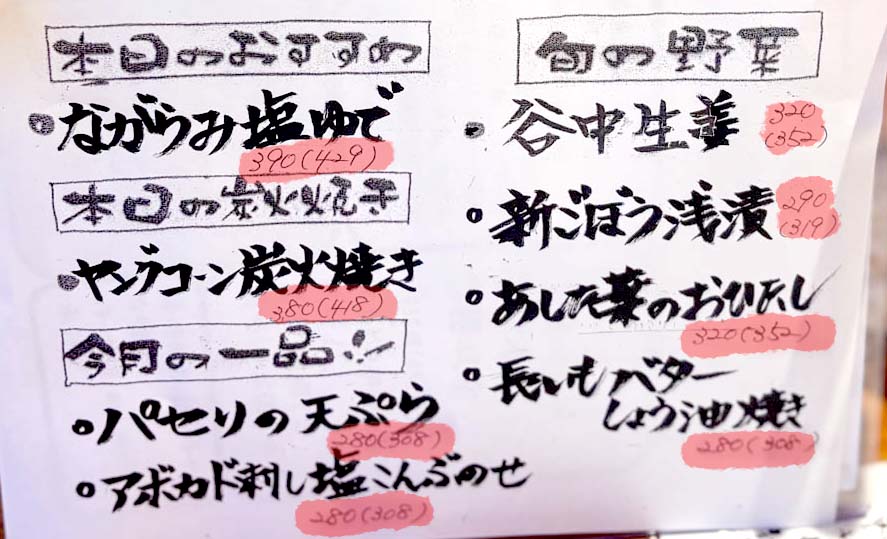 本日のおすすめ
◎ながらみ塩ゆで
390(429)
本日の炭火焼き
・ヤングコーン炭火焼き
380(418)
今月の一品!!
○パセリの天ぷら
280(308)
○アボカド刺し塩こんぶのせ
280(308)
旬の野菜
・谷中生姜
320
(352)
○新ごぼう浅漬
290
(319)
○あした葉のおひたし
320(352)
○長いもバター
しょう油焼き
280(308)